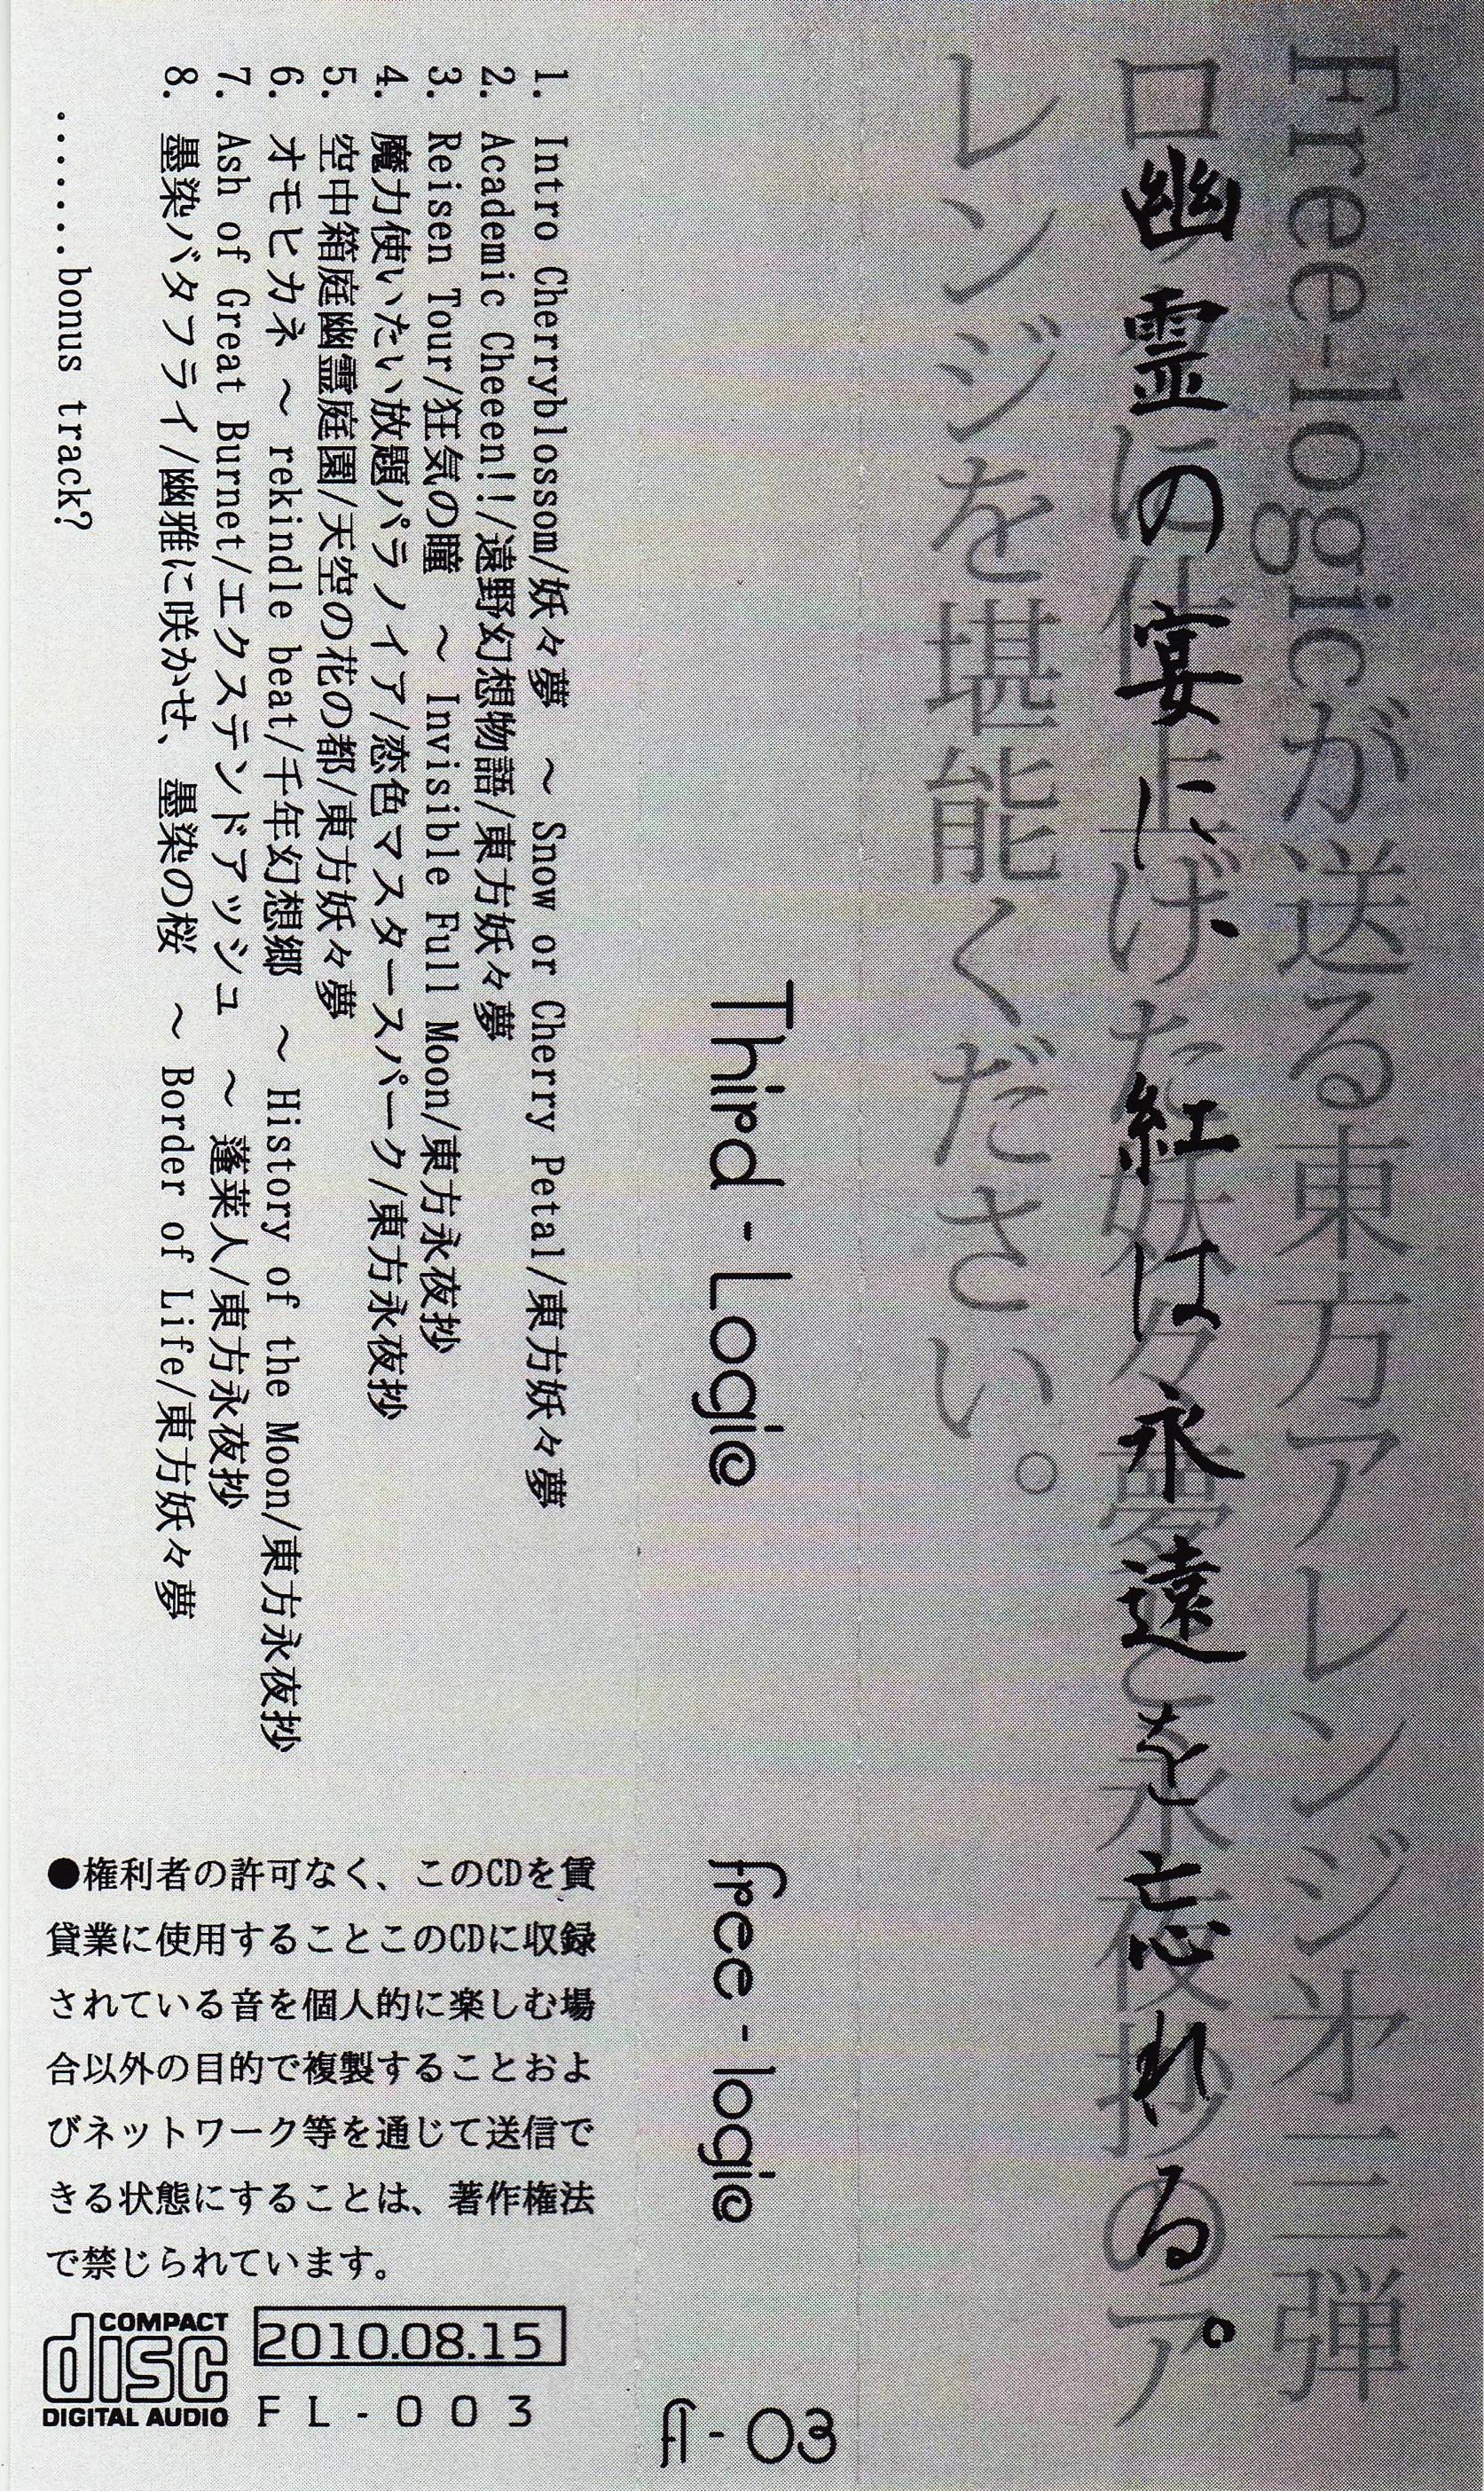 Free-logicが送る東方アレンジ才三弾
ロックに仕上げた妖々夢と永夜抄のア
レンジを堪能ください。
幽霊の宴に、紅は永遠を忘れる。
Third - Logic
free - logic
fl - 03
1. Intro Cherryblossom/妖々夢 ～ Snow or Cherry Petal/東方妖々夢
2. Academic Cheeen!!/遠野幻想物語/東方妖々夢
3. Reisen Tour/狂気の瞳 ～ Invisible Full Moon/東方永夜抄
4. 魔力使いたい放題パラノイア/恋色マスタースパーク/東方永夜抄
5. 空中箱庭幽霊庭園/天空の花の都/東方妖々夢
6. オモヒカネ ～ rekindle beat/千年幻想郷 ～ History of the Moon/東方永夜抄
7. Ash of Great Burnet/エクステンドアッシュ ～ 蓬莱人/東方永夜抄
8. 墨染バタフライ/幽雅に咲かせ、墨染の桜 ～ Border of Life/東方妖々夢
.......bonus track?
●権利者の許可なく、このCDを賃
貸業に使用することこのCDに収録
されている音を個人的に楽しむ場
合以外の目的で複製することおよ
びネットワーク等を通じて送信で
きる状態にすることは、著作権法
で禁じられています。
COMPACT
disc
DIGITAL AUDIO
2010.08.15
FL-003